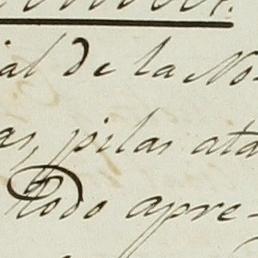 ial de la No
as, pilas ata
Todo apre-